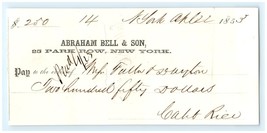 $ 250 14 N York 1855
ABRAHAM BELL & SON,
25 PARK ROW, NEW YORK.
Pay to the Mess Fuller & Dayton
Two hundred fifty Dollars
Caleb Rice